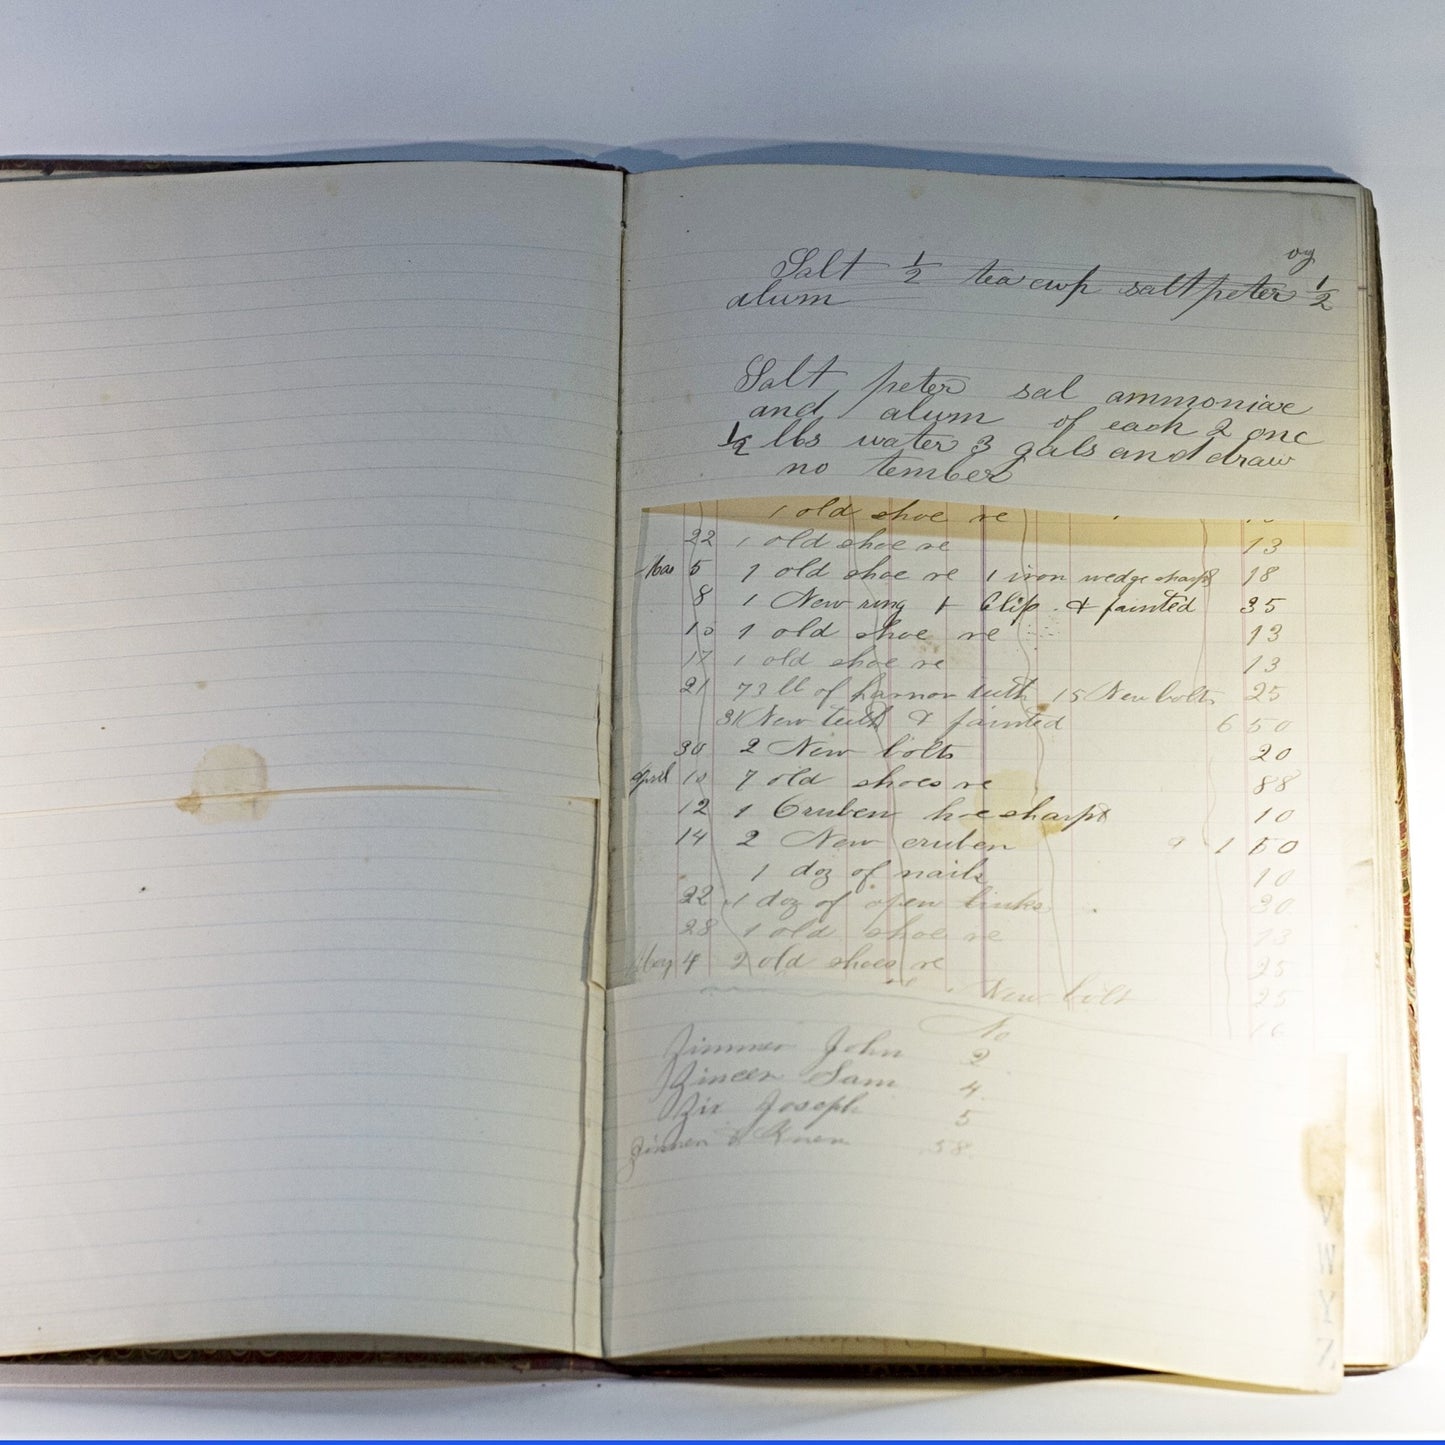 oz
Salt ½ tea cup saltpeter ½
alum
Salt peter sal ammoniac
and alum of each 2 onc
½ lbs water 3 gals and draw
no tember
1 old shoe re
22 1 old shoe re 13
Mar 5 1 old shoe re 1 iron wedge sharp 18
8 1 New ring + Clip & painted 35
10 1 old shoe re 13
17 1 old shoe re 13
21 73 lb of harrow teeth 15 New bolts 25
31 New teeth & painted 6 50
30 2 New bolts 20
April 10 7 old shoes re 88
12 1 Gruben hoe sharp 10
14 2 New cruben 9 1 50
1 doz of nails 10
22 1 doz of open links 30
28 1 old shoe re 13
May 4 2 old shoes re 25
New bolt 25
No
Zimmer John 2
Sam 4
Zir Joseph 5
58
V
W
Y
Z